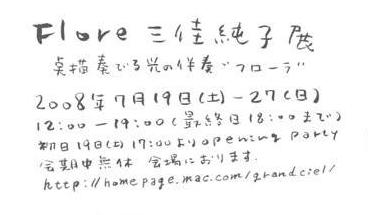 Flore 三佳純子展
点描奏でる光の伴奏 "フローラ"
2008年7月19日(土)-27(日)
12:00-19:00(最終日18:00まで)
初日19日(土)17:00よりopening party
会期中無休 会場におります.
http://homepage.mac.com/grandciel/